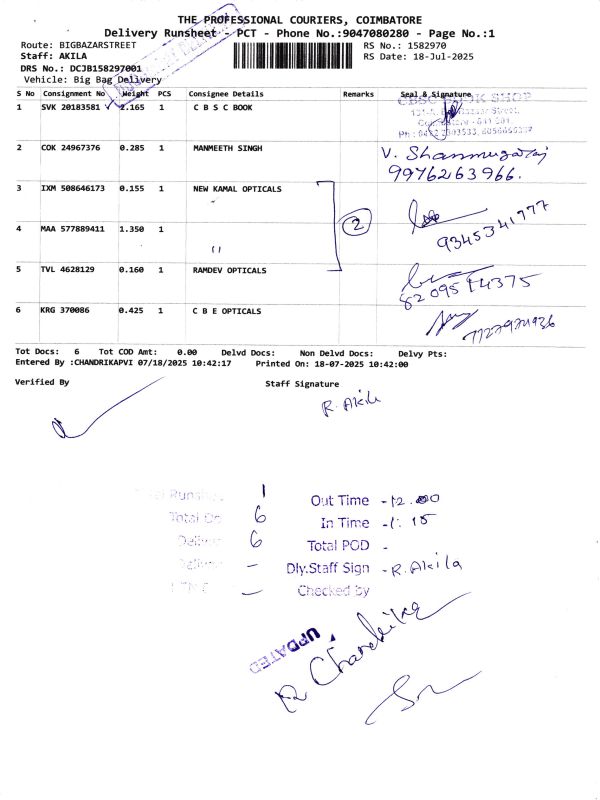 THE PROFESSIONAL COURIERS, COIMBATORE
Delivery Runsheet - PCT - Phone No.:9047080280 - Page No.:1
Route: BIGBAZARSTREET RS No.: 1582970
Staff: AKILA RS Date: 18-Jul-2025
DRS No.: DCJB158297001
Vehicle: Big Bag Delivery
S No Consignment No Weight PCS Consignee Details Remarks Seal & Signature
1 SVK 20183581 2.165 1 C B S C BOOK
CBSC BOOK SHOP
2 COK 24967376 0.285 1 MANMEETH SINGH V. Shanmugaraj
9976263966.
3 IXM 508646173 0.155 1 NEW KAMAL OPTICALS
2
4 MAA 577889411 1.350 1 〃 9345341777
5 TVL 4628129 0.160 1 RAMDEV OPTICALS
8209514375
6 KRG 370086 0.425 1 C B E OPTICALS
Tot Docs: 6 Tot COD Amt: 0.00 Delvd Docs: Non Delvd Docs: Delvy Pts:
Entered By :CHANDRIKAPVI 07/18/2025 10:42:17 Printed On: 18-07-2025 10:42:00
Verified By Staff Signature
R. Akila
Total Runsheet 1 Out Time - 12.00
Total Do 6 In Time - 1.15
Deliver 6 Total POD -
– Dly.Staff Sign - R. Akila
– Checked by
UPDATED
R Chandrika